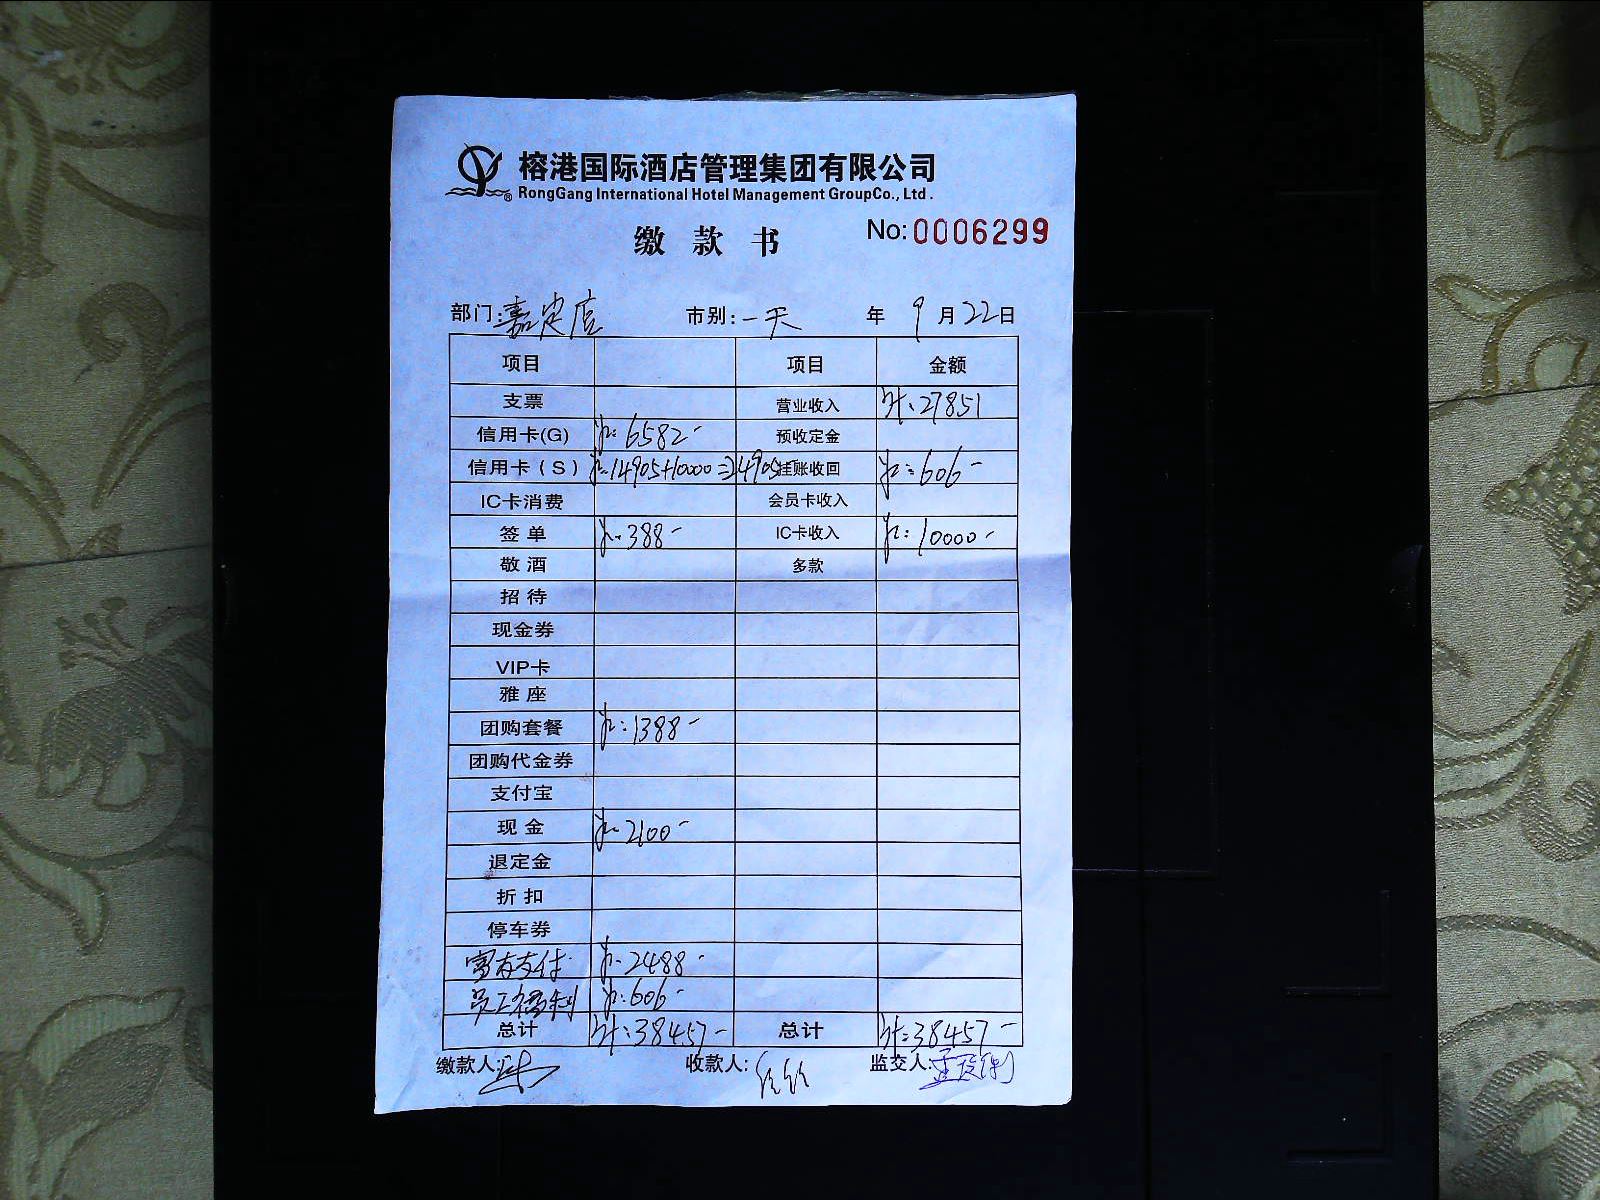 榕港国际酒店管理集团有限公司
RongGang International Hotel Management GroupCo., Ltd.
缴 款 书
No:0006299
部门:嘉定店 市别:一天 年 9月22日
项目 项目 金额
支票 营业收入 计:27851
信用卡(G) 记:6582- 预收定金
信用卡(S) 记:14905+10000=24905 挂账收回 记:606-
IC卡消费 会员卡收入
签单 记:388- IC卡收入 记:10000-
敬酒 多款
招待
现金券
VIP卡
雅座
团购套餐 记:1388-
团购代金券
支付宝
现金 记:2100-
退定金
折扣
停车券
富友支付 记:2488-
员工福利 记:606-
总计 计:38457- 总计 计:38457-
缴款人: 收款人: 监交人: